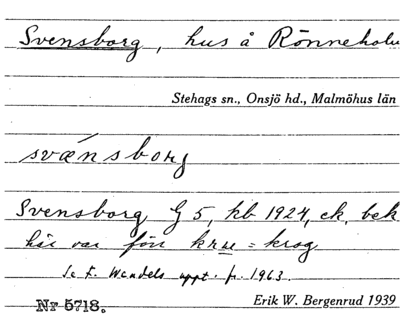 Svensborg, hus å Rönneholm
Stehags sn., Onsjö hd., Malmöhus län
svænsborg
Svensborg G 5, kb 1924, ek. bek
här var förr kru = krog
Se F. Wendels uppt. fr. 1963.
Nr 5718.
Erik W. Bergenrud 1939